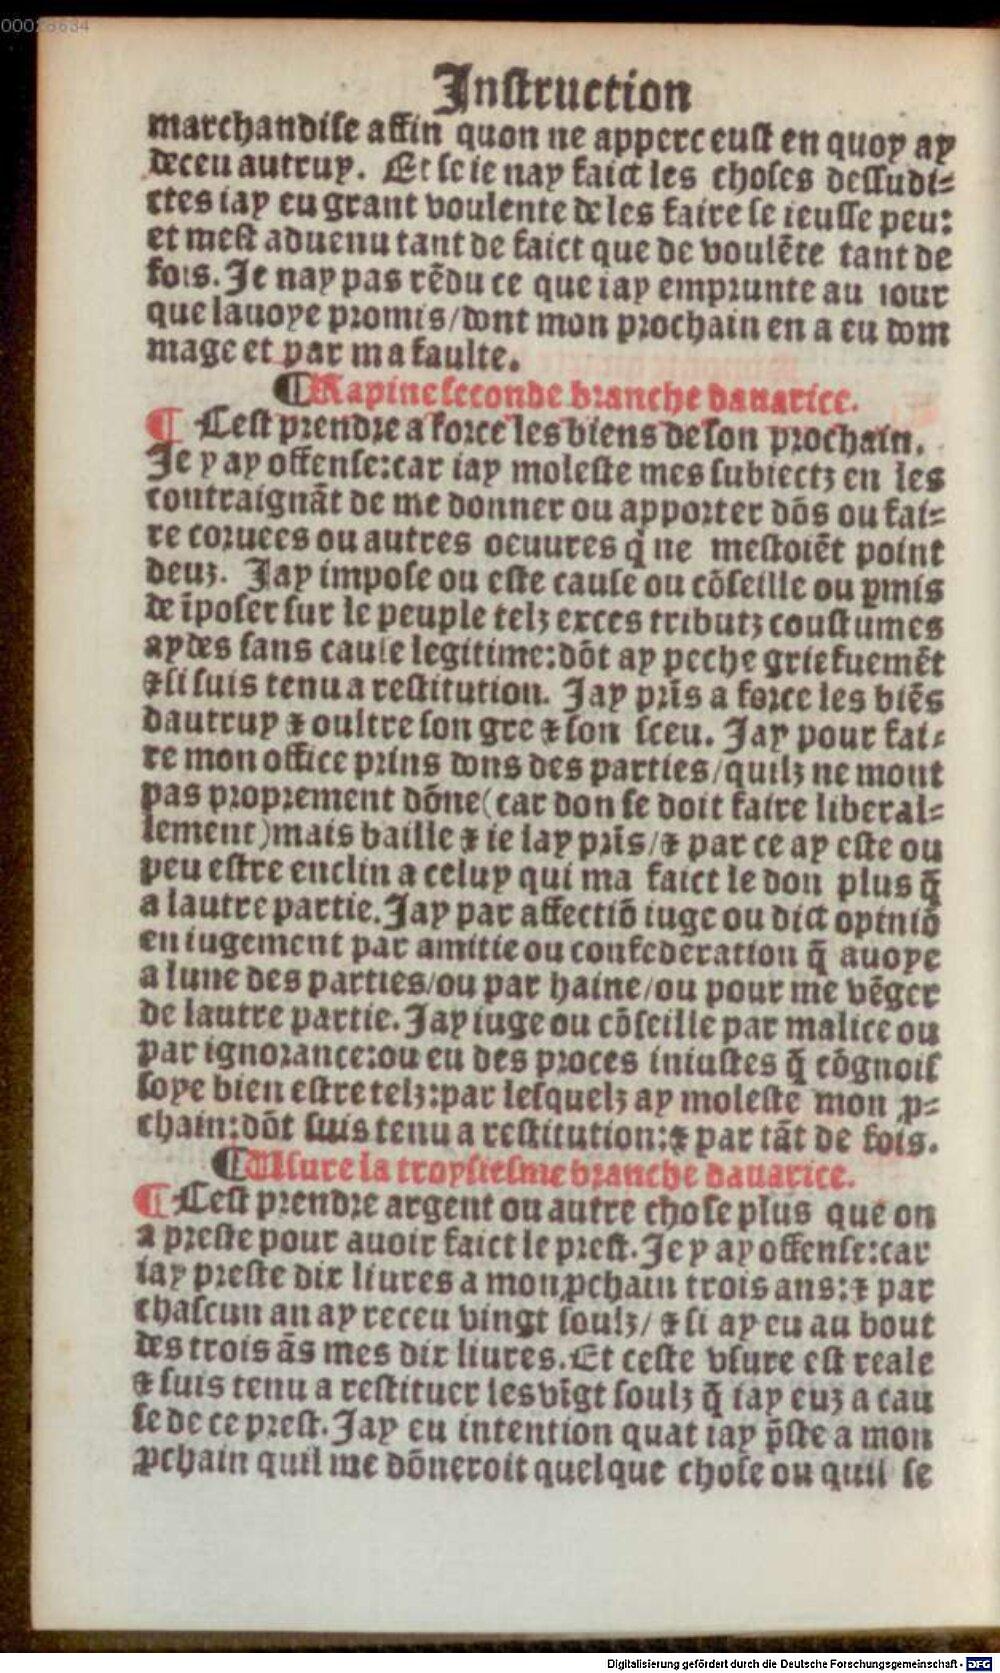 00028634
Instruction
marchandise affin quon ne apperceeust en quoy ay
deceu autruy. Et se ie nay faict les choses dessudi=
ctes iay eu grant voulente de les faire se ieusse peu:
et mest aduenu tant de faict que de voulẽte tant de
fois. Je nay pas rẽdu ce que iay emprunte au iour
que lauoye promis/dont mon prochain en a eu dom
mage et par ma faulte.
¶Rapine seconde branche dauarice.
¶ Cest prendre a force les biens de son prochain.
Je y ay offense:car iay moleste mes subiectz en les
contraignãt de me donner ou apporter dõs ou fai=
re coruees ou autres oeuures q̃ ne mestoiẽt point
deuz. Jay impose ou este cause ou cõseille ou ꝑmis
de ĩposer sur le peuple telz exces tributz coustumes
aydes sans cause legitime:dõt ay peche griefuemẽt
⁊ si suis tenu a restitution. Jay prĩs a force les biẽs
dautruy ⁊ oultre son gre ⁊ son sceu. Jay pour fai=
re mon office prins dons des parties/quilz ne mont
pas proprement dõne(car don se doit faire liberal=
lement)mais baille ⁊ ie lay prĩs/⁊ par ce ay este ou
peu estre enclin a celuy qui ma faict le don plus q̃
a lautre partie. Jay par affectiõ iuge ou dict opiniõ
en iugement par amitie ou confederation q̃ auoye
a lune des parties/ou par haine/ou pour me vẽger
de lautre partie. Jay iuge ou cõseille par malice ou
par ignorance:ou eu des proces iniustes q̃ cõgnois
soye bien estre telz:par lesquelz ay moleste mon ꝓ=
chain:dõt suis tenu a restitution:⁊ par tãt de fois.
¶Usure la troysiesme branche dauarice.
¶ Cest prendre argent ou autre chose plus que on
a preste pour auoir faict le prest. Je y ay offense:car
iay preste dix liures a mon ꝓchain trois ans:⁊ par
chascun an ay receu vingt soulz/⁊ si ay eu au bout
des trois ãs mes dix liures. Et ceste vsure est reale
⁊ suis tenu a restituer les vĩgt soulz q̃ iay euz a cau
se de ce prest. Jay eu intention quãt iay p̃ste a mon
ꝓchain quil me dõneroit quelque chose ou quil se
Digitalisierung gefördert durch die Deutsche Forschungsgemeinschaft - DFG